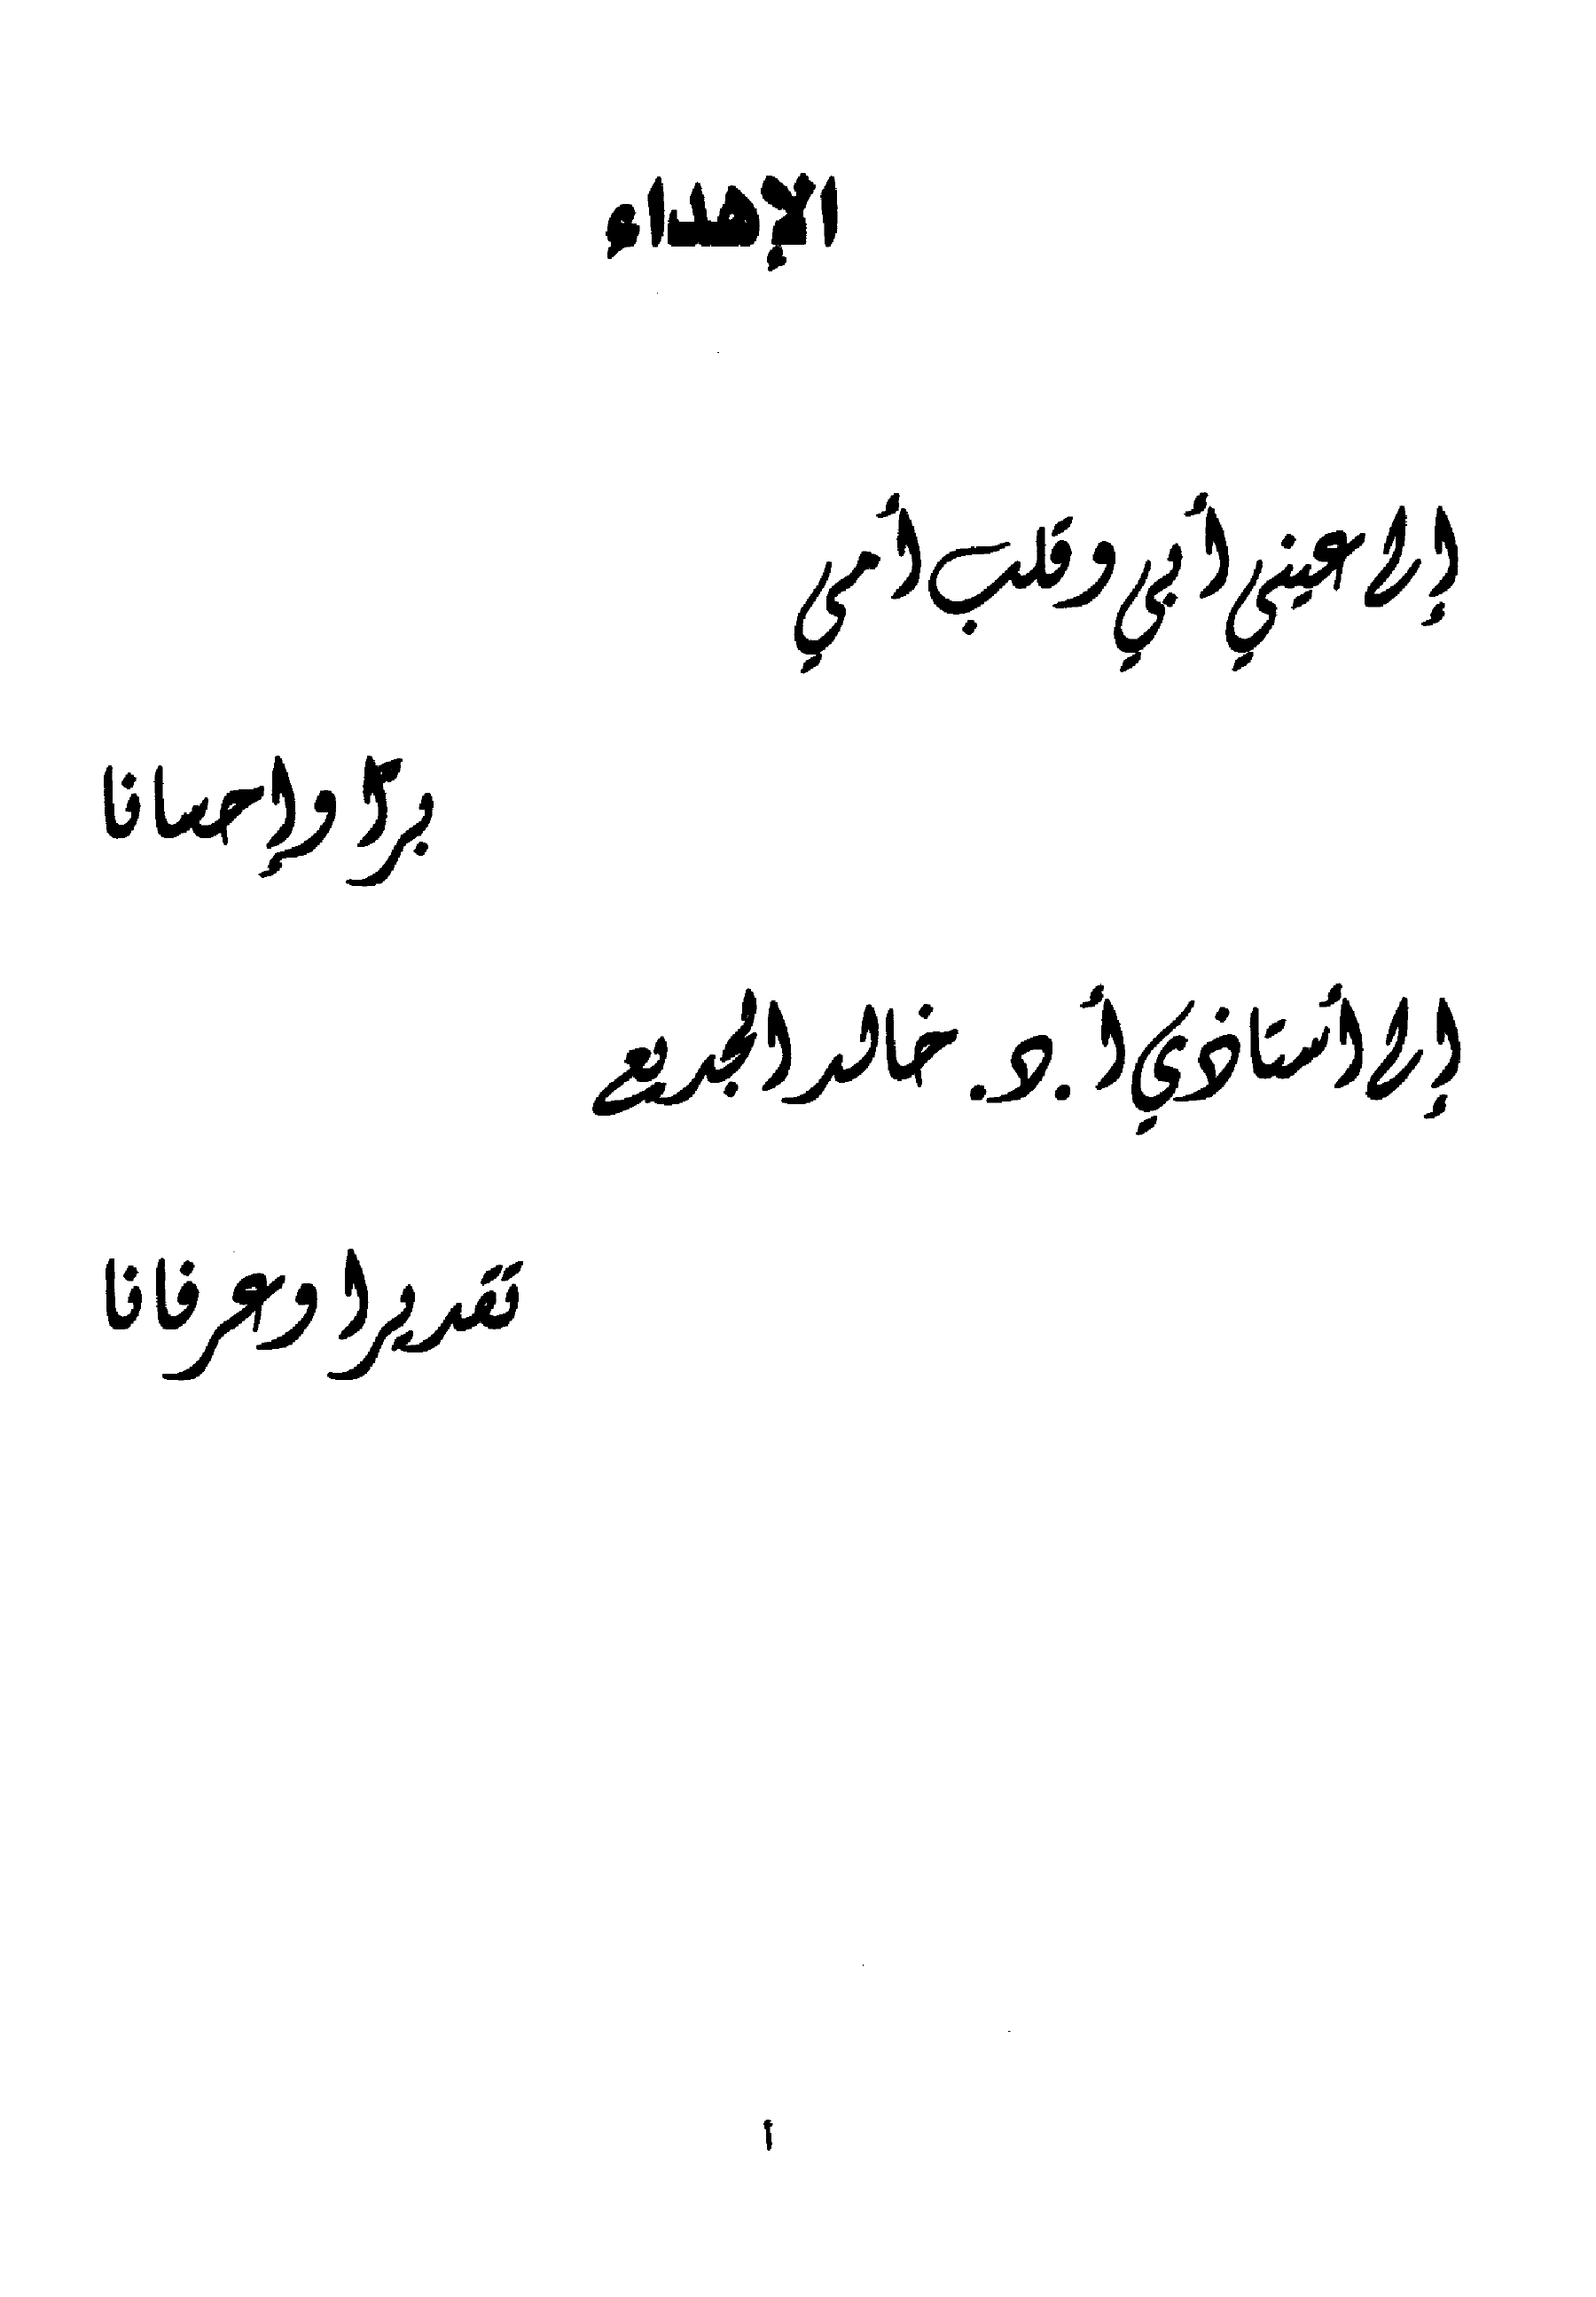 الإهداء
إلى عيني أبي وقلب أمي
برًّا وإحسانا
إلى أستاذي أ.د. خالد الجديع
تقديرا وعرفانا
أ